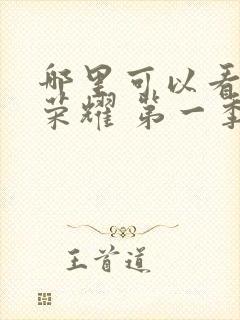 哪里可以看
荣耀 第一季
王首道